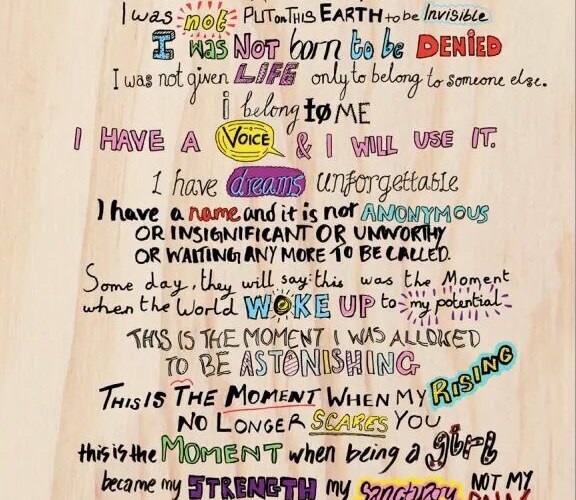 I was not PUT on THIS EARTH to be Invisible
I was NOT born to be DENIED
I was not given LIFE only to belong to someone else.
i belong to ME
I HAVE A VOICE & I WILL USE IT.
I have dreams unforgettable
I have a name and it is not ANONYMOUS
OR INSIGNIFICANT OR UNWORTHY
OR WAITING ANY MORE TO BE CALLED.
Some day, they will say: this was the Moment
when the World WOKE UP to my potential
THIS IS THE MOMENT I WAS ALLOWED
TO BE ASTONISHING
THIS IS THE MOMENT WHEN MY RISING
NO LONGER SCARES YOU
this is the MOMENT when being a girl
became my STRENGTH my sanctuary NOT MY